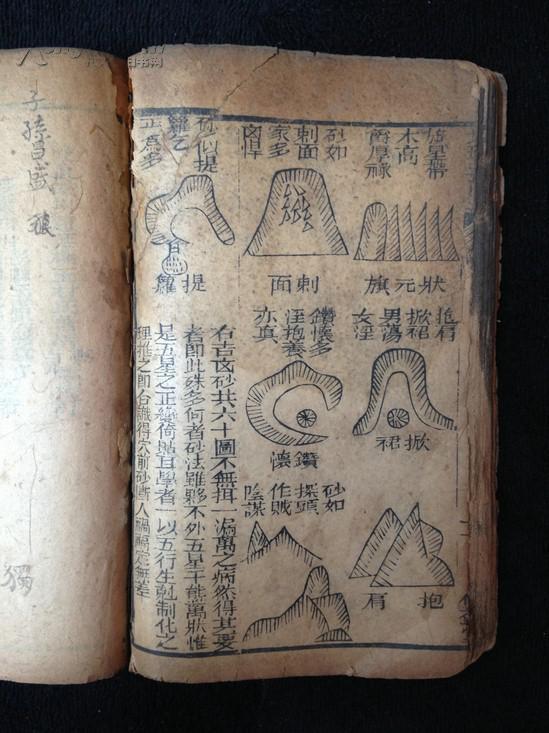 砂如
刺面
家多
凶悍
砂似提
籮乞
正為多
狀元旗
刺面
提籮
抱肩
掀裙
男蕩
女淫
鑽懷多
淫抱養
亦真
掀裙
鑽懷
砂如
探頭
作賊
陰謀
抱肩
右吉凶砂共六十圖不無掛一漏萬之病然得其要
者即此殊多何者砂法雖夥不外五星千態萬狀惟
是五星之正變倚貼耳學者一以五行生剋制化之
理推之即台識得穴前砂斷人禍福定無差
子孫昌盛
獨